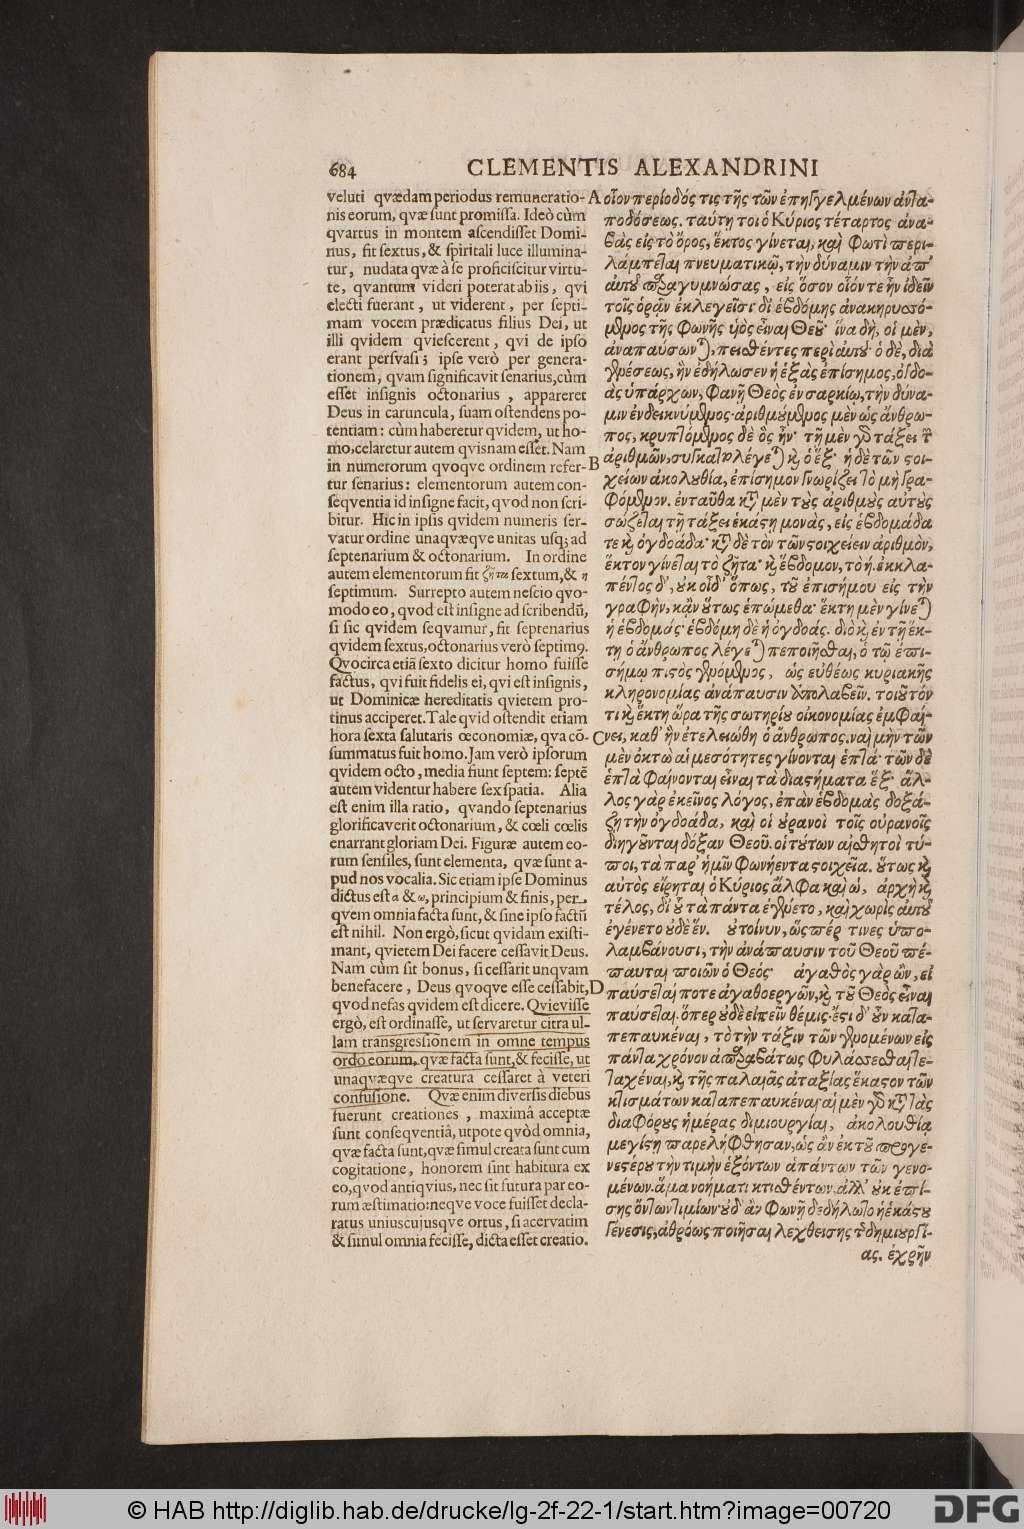 684
CLEMENTIS ALEXANDRINI
veluti qvædam periodus remuneratio-
nis eorum, qvæ sunt promissa. Ideò cùm
qvartus in montem ascendisset Domi-
nus, fit sextus, & spiritali luce illumina-
tur, nudata qvæ à se proficiscitur virtu-
te, qvantum videri poterat ab iis, qvi
electi fuerant, ut viderent, per septi-
mam vocem prædicatus filius Dei, ut
illi qvidem qviescerent, qvi de ipso
erant persvasi; ipse verò per genera-
tionem, qvam significavit senarius, cùm
esset insignis octonarius, appareret
Deus in caruncula, suam ostendens po-
tentiam: cùm haberetur qvidem, ut ho-
mo, celaretur autem qvisnam esset. Nam
in numerorum qvoqve ordinem refer-
tur senarius: elementorum autem con-
seqventia id insigne facit, qvod non scri-
bitur. Hic in ipsis qvidem numeris ser-
vatur ordine unaqvæqve unitas usq; ad
septenarium & octonarium. In ordine
autem elementorum fit ζῆτα sextum, & η
septimum. Surrepto autem nescio qvo-
modo eo, qvod est insigne ad scribendũ,
si sic qvidem seqvamur, fit septenarius
qvidem sextus, octonarius verò septimꝰ.
Qvocirca etiã sexto dicitur homo fuisse
factus, qvi fuit fidelis ei, qvi est insignis,
ut Dominicæ hereditatis qvietem pro-
tinus acciperet. Tale qvid ostendit etiam
hora sexta salutaris œconomiæ, qva cõ-
summatus fuit homo. Jam verò ipsorum
qvidem octo, media fiunt septem: septẽ
autem videntur habere sex spatia. Alia
est enim illa ratio, qvando septenarius
glorificaverit octonarium, & cœli cœlis
enarrant gloriam Dei. Figuræ autem eo-
rum sensiles, sunt elementa, qvæ sunt a-
pud nos vocalia. Sic etiam ipse Dominus
dictus est α & ω, principium & finis, per
qvem omnia facta sunt, & sine ipso factũ
est nihil. Non ergò, sicut qvidam existi-
mant, qvietem Dei facere cessavit Deus.
Nam cùm sit bonus, si cessarit unqvam
benefacere, Deus qvoqve esse cessabit,
qvod nefas qvidem est dicere. Qvievisse
ergò, est ordinasse, ut servaretur citra ul-
lam transgressionem in omne tempus
ordo eorum, qvæ facta sunt, & fecisse, ut
unaqvæqve creatura cessaret à veteri
confusione. Qvæ enim diversis diebus
fuerunt creationes, maximâ acceptæ
sunt conseqventiâ, utpote qvòd omnia,
qvæ facta sunt, qvæ simul creata sunt cum
cogitatione, honorem sint habitura ex
eo, qvod antiqvius, nec sit futura par eo-
rum æstimatio: neqve voce fuisset decla-
ratus uniuscujusqve ortus, si acervatim
& simul omnia fecisse, dicta esset creatio.
A οἷον περίοδός τις τῆς τῶν ἐπηγγελμένων ἀντα-
ποδόσεως. ταύτῃ τοι ὁ Κύριος τέταρτος ἀνα-
βὰς εἰς τὸ ὄρος, ἕκτος γίνεται, καὶ φωτὶ περι-
λάμπεται πνευματικῷ, τὴν δύναμιν τὴν ἀπ'
αὐτοῦ παραγυμνώσας, εἰς ὅσον οἷόν τε ἦν ἰδεῖν
τοῖς ὁρᾷν ἐκλεγεῖσι· δι' ἑβδόμης ἀνακηρυσσό-
μενος τῆς φωνῆς υἱὸς εἶναι Θεοῦ· ἵνα δὴ, οἱ μὲν,
ἀναπαύσωνται, πεισθέντες περὶ αὐτοῦ· ὁ δὲ, διὰ
γενέσεως, ἣν ἐδήλωσεν ἡ ἑξὰς ἐπίσημος, ὀγδο-
ὰς ὑπάρχων, φανῇ Θεὸς ἐν σαρκίῳ, τὴν δύνα-
μιν ἐνδεικνύμενος· ἀριθμούμενος μὲν ὡς ἄνθρω-
πος, κρυπτόμενος δὲ ὃς ἦν· τῇ μὲν γὰρ τάξει τῶν
B ἀριθμῶν, συγκαταλέγεται καὶ ὁ ἕξ· ἡ δὲ τῶν στοι-
χείων ἀκολουθία, ἐπίσημον γνωρίζει τὸ μὴ γρα-
φόμενον. ἐνταῦθα κατὰ μὲν τοὺς ἀριθμοὺς αὐτοὺς
σώζεται τῇ τάξει ἑκάστη μονὰς, εἰς ἑβδομάδα
τε καὶ ὀγδοάδα· κατὰ δὲ τὸν τῶν στοιχείειν ἀριθμὸν,
ἕκτον γίνεται τὸ ζῆτα· καὶ ἕβδομον, τὸ ή. ἐκκλα-
πέντος δ', οὐκ οἶδ' ὅπως, τοῦ ἐπισήμου εἰς τὴν
γραφὴν, κἂν οὕτως ἑπώμεθα· ἕκτη μὲν γίνεται
ἡ ἑβδομάς· ἑβδόμη δὲ ἡ ὀγδοάς. διὸ καὶ ἐν τῇ ἕκ-
τῃ ὁ ἄνθρωπος λέγεται πεποιῆσθαι, ὁ τῷ ἐπι-
σήμῳ πιστὸς γενόμενος, ὡς εὐθέως κυριακῆς
κληρονομίας ἀνάπαυσιν ἀπολαβεῖν. τοιοῦτόν
τι καὶ ἕκτη ὥρα τῆς σωτηρίου οἰκονομίας ἐμφαί-
C νει, καθ' ἣν ἐτελειώθη ὁ ἄνθρωπος. ναὶ μὴν τῶν
μὲν ὀκτὼ αἱ μεσότητες γίνονται ἑπτά· τῶν δὲ
ἑπτὰ φαίνονται εἶναι τὰ διαστήματα ἕξ· ἄλ-
λος γὰρ ἐκεῖνος λόγος, ἐπὰν ἑβδομὰς δοξά-
ζῃ τὴν ὀγδοάδα, καὶ οἱ οὐρανοὶ τοῖς οὐρανοῖς
διηγοῦνται δόξαν Θεοῦ. οἱ τούτων αἰσθητοὶ τύ-
ποι, τὰ παρ' ἡμῖν φωνήεντα στοιχεῖα. οὕτως καὶ
αὐτὸς εἴρηται ὁ Κύριος ἄλφα καὶ ὠ, ἀρχὴ καὶ
τέλος, δι' οὗ τὰ πάντα ἐγένετο, καὶ χωρὶς αὐτοῦ
ἐγένετο οὐδὲ ἕν. οὐ τοίνυν, ὥσπέρ τινες ὑπο-
λαμβάνουσι, τὴν ἀνάπαυσιν τοῦ Θεοῦ πέ-
παυται ποιῶν ὁ Θεός· ἀγαθὸς γὰρ ὢν, εἰ
D παύσεταί ποτε ἀγαθοεργῶν, καὶ τοῦ Θεὸς εἶναι
παύσεται. ὅπερ οὐδὲ εἰπεῖν θέμις· ἔστι δ' οὖν κατα-
πεπαυκέναι, τὸ τὴν τάξιν τῶν γενομένων εἰς
πάντα χρόνον ἀπαραβάτως φυλάσσεσθαι τε-
ταχέναι, καὶ τῆς παλαιᾶς ἀταξίας ἕκαστον τῶν
κτισμάτων καταπεπαυκέναι· αἱ μὲν γὰρ κατὰ τὰς
διαφόρους ἡμέρας διμιουργίαι, ἀκολουθίᾳ
μεγίστῃ παρελήφθησαν, ὡς ἂν ἐκ τοῦ προγε-
νεστέρου τὴν τιμὴν ἑξόντων ἁπάντων τῶν γενο-
μένων. ἅμα νοήματι κτισθέντων. ἀλλ' οὐκ ἐπί-
σης ὄντων τιμίων· οὐδ' ἂν φωνῇ δεδήλωτο ἡ ἑκάστου
γένεσις, ἀθρόως ποιῆσαι λεχθείσης τῆς δημιουργί-
ας. ἐχρῆν
© HAB http://diglib.hab.de/drucke/lg-2f-22-1/start.htm?image=00720
DFG